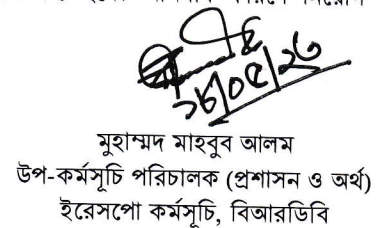 মুহাম্মদ মাহবুব আলম
উপ-কর্মসূচি পরিচালক (প্রশাসন ও অর্থ)
ইরেসপো কর্মসূচি, বিআরডিবি